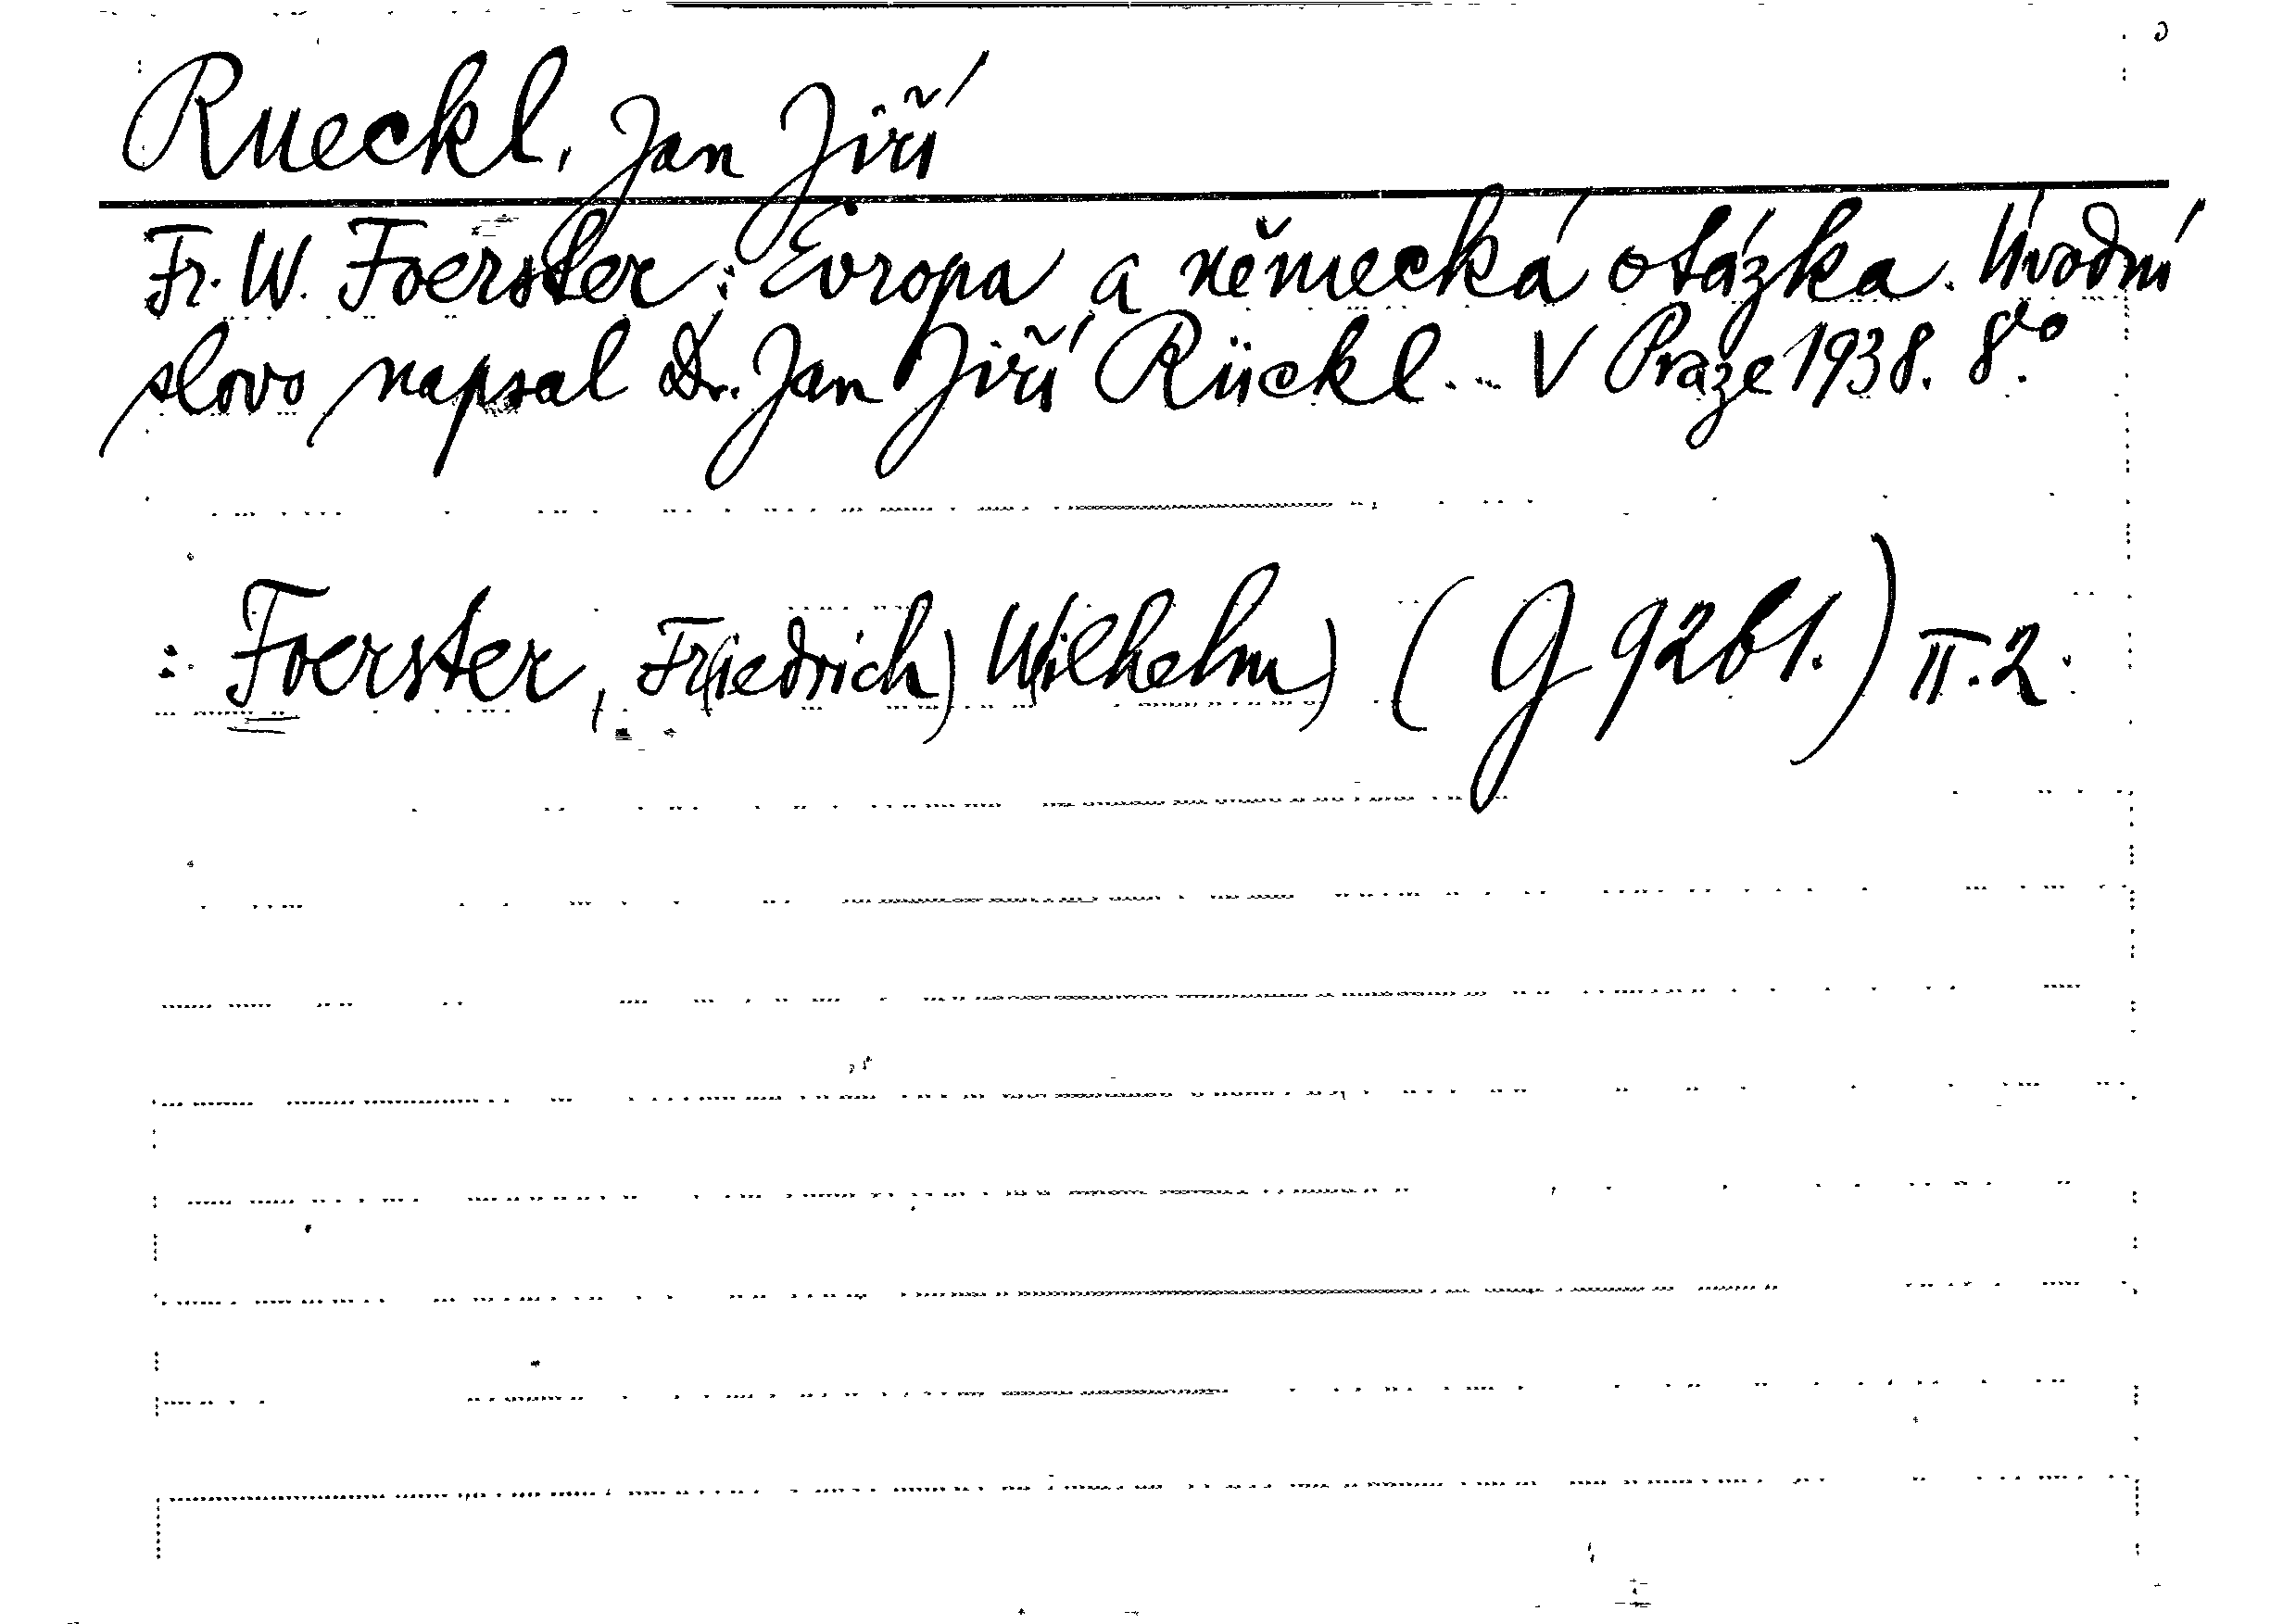 Rueckl, Jan Jiří
Fr. W. Foerster: Evropa a německá otázka. Úvodní
slovo napsal Dr. Jan Jiří Rückl... V Praze 1938. 8°.
: Foerster, Fr(iedrich) W(ilhelm) (G 9261.) II.2.